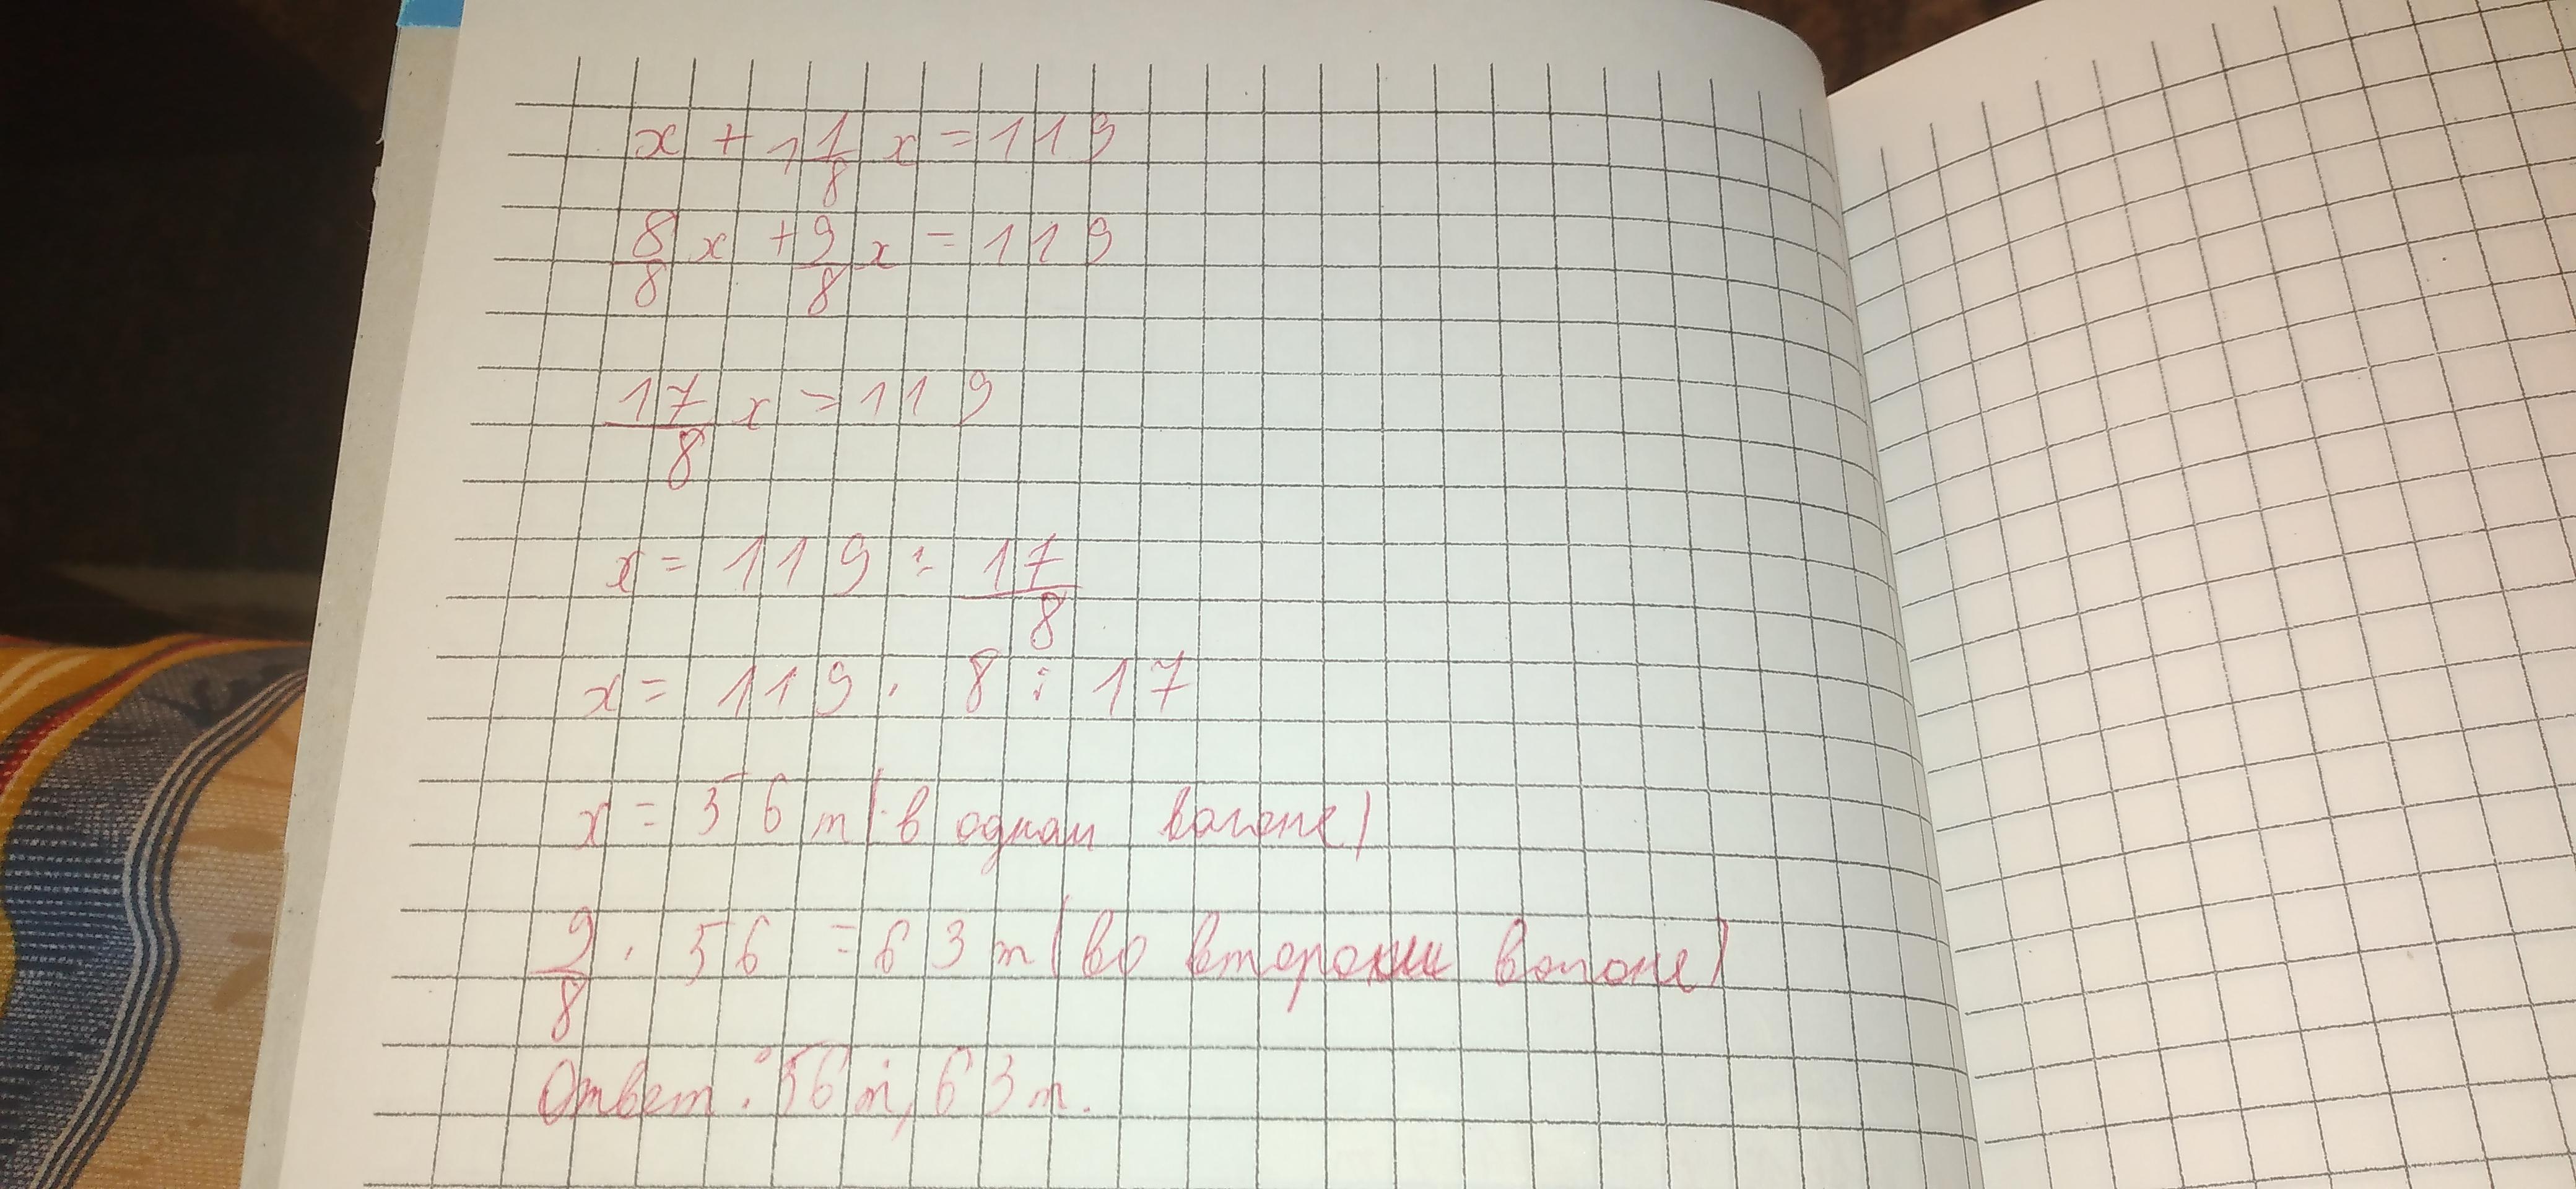 x + 1 1/8 x = 119
8/8 x + 9/8 x = 119
17/8 x = 119
x = 119 : 17/8
x = 119 · 8 : 17
x = 56 т (в одном вагоне)
9/8 · 56 = 63 т (во втором вагоне)
Ответ: 56 т, 63 т.